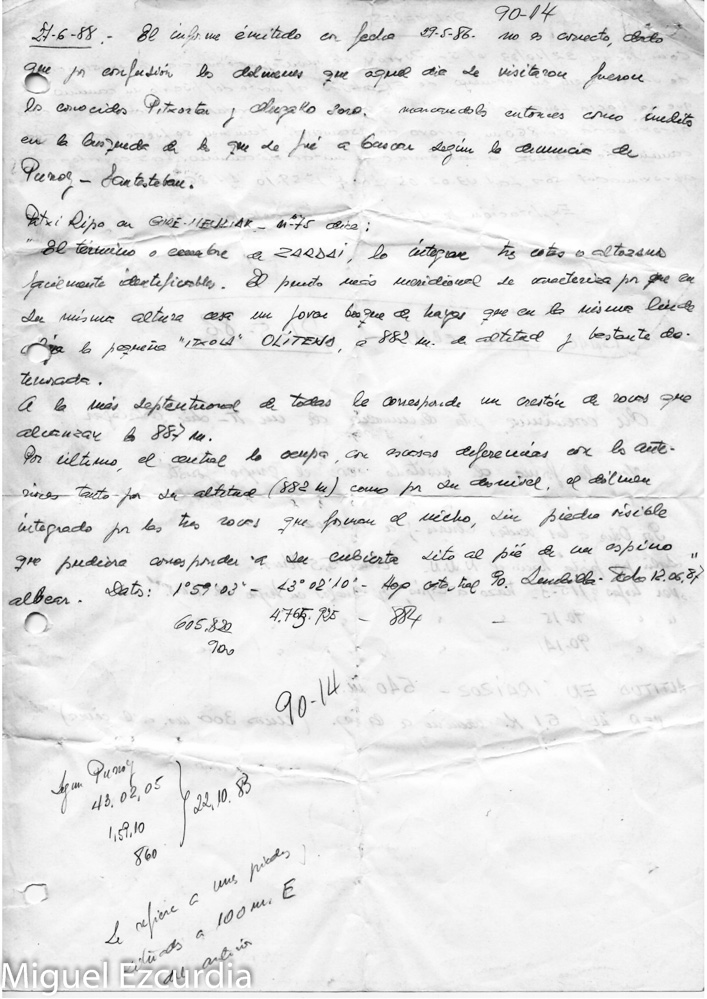 90-14
27-6-88.- El informe emitido en fecha 29-5-86. no es correcto, dado
que por confusión los dolmenes que aquel dia se visitaron fueron
los conocidos Pitxorta y soro. marcandoles entonces como inedito
en la busqueda de la que se fué a buscar según la denuncia de
- Santesteban.
Patxi Ripa en - nº 75 dice:
"El término o cumbre de ZARDAI, lo integran tres cotas o altozanos
facilmente identificables. El punto más meridional se caracteriza por que en
su misma altura cesa un joven bosque de hayas que en la misma linde
la pequeña "ITXOLA" , a 882 m. de altitud y bastante de-
teriorada.
A la más septentrional de todas le corresponde un crestón de rocas que
alcanzan los 887 m.
Por último, el central lo ocupa, con escasas diferencias con los ante-
riores tanto por su altitud (882 m) como por su desnivel, el dólmen
integrado por las tres rocas que forman el nicho, sin piedra visible
que pudiera corresponder a su cubierta sito al pié de un espino
albear." Dato: 1º59'03" - 43º02'10" - Hoja catastral 90. - Fecha 12.06.87
605.820 4.765.925 - 884
900
90-14
Segun
43.02.05
1,59,10
860
22.10.83
Se refiere a unas piedras
situadas a 100 m. E
del anterior
Miguel Ezcurdia